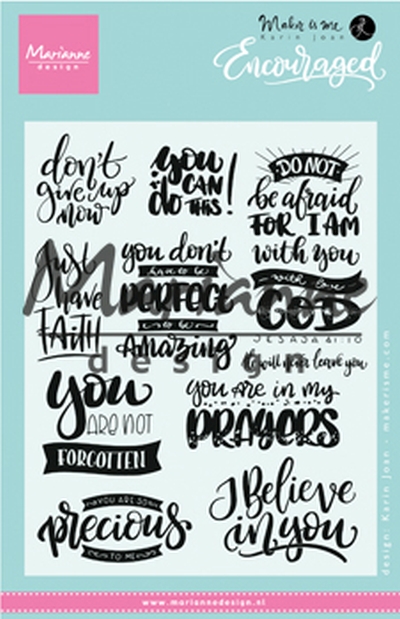 Marianne
design
Maker is me
Karin Joan
Encouraged
don't
give up
now
you
CAN
do THIS!
DO NOT
be afraid
FOR I AM
with you
Just
have
FAITH
you don't
have to be
PERFECT
to be
Amazing
with love
GOD
JESAJA 41:10
He will never leave you
Marianne
design
you
ARE NOT
FORGOTTEN
you ARE in my
PRAYERS
YOU ARE SO
precious
TO ME
I Believe
in you
design: Karin Joan - makerisme.com
www.mariannedesign.nl